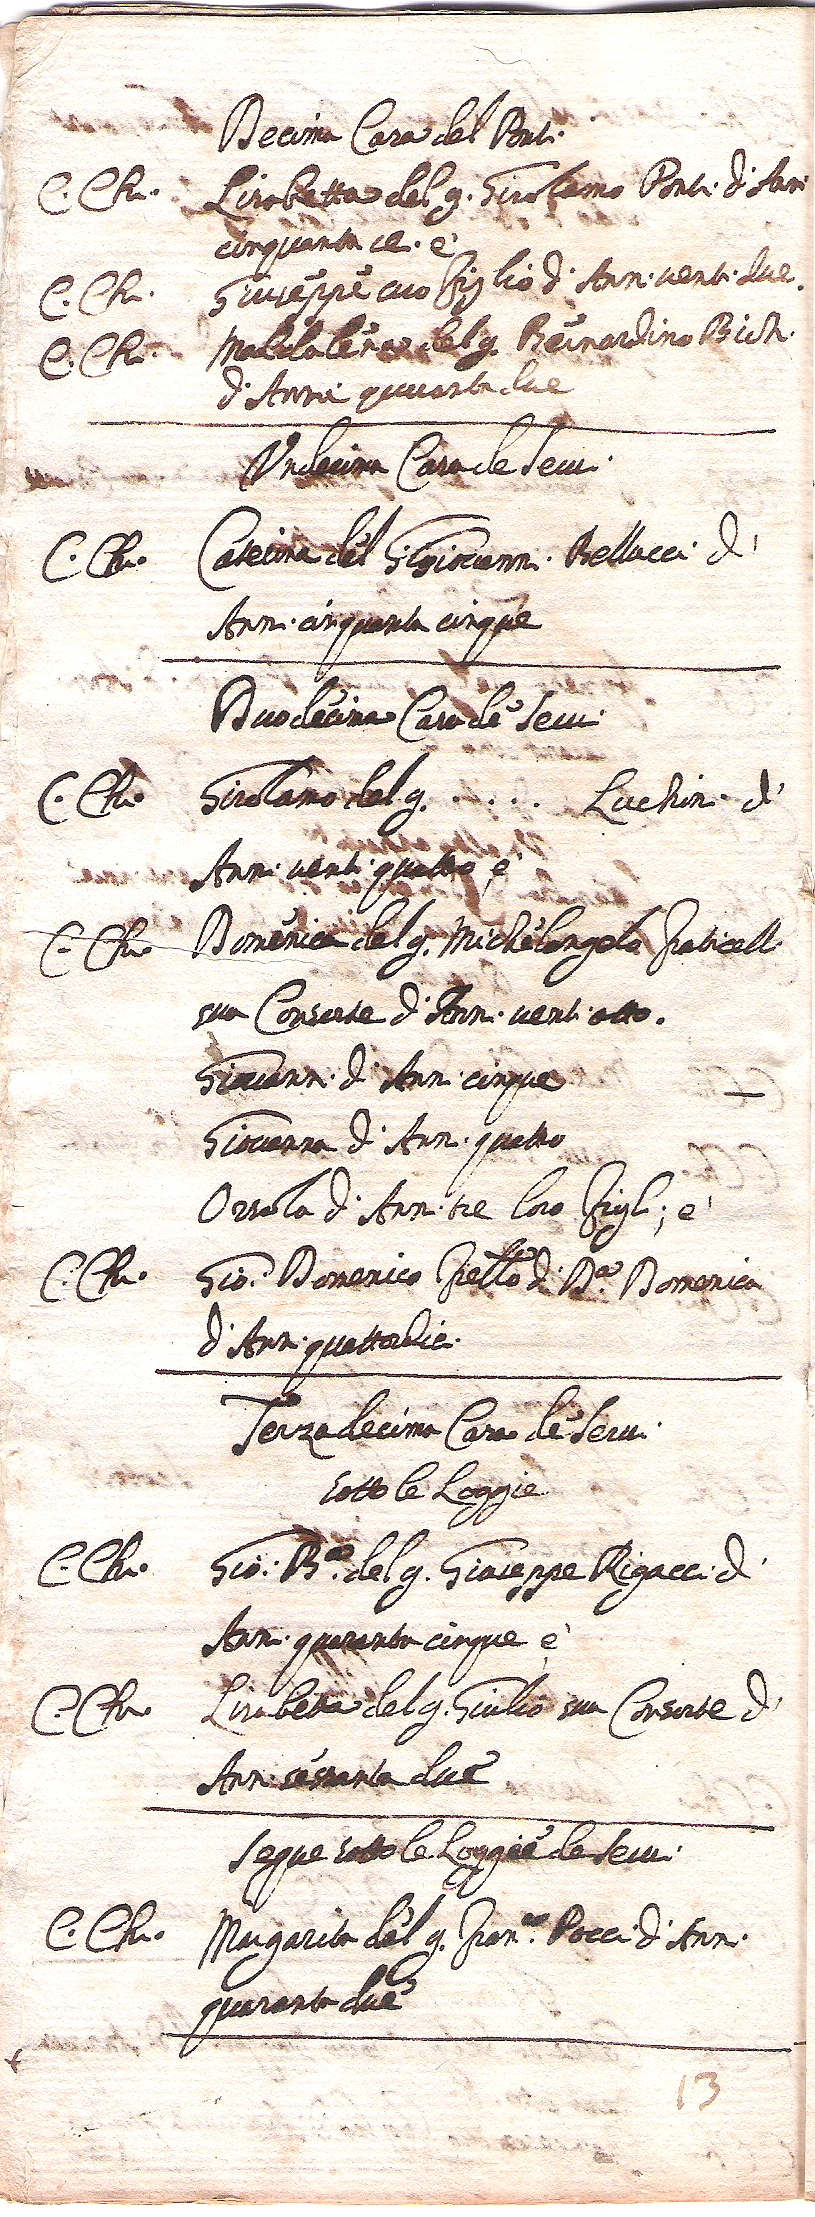 Decima Casa del Ponti
C. Chr. Lisabetta del q. Girolamo Ponti d'Anni
cinquanta e'
C. Chr. Giuseppe suo figlio d'Anni venti due.
C. Chr. Maddalena del q. Bernardino Bich.
d'Anni quaranta due
Undecima Casa de Servi
C. Chr. Caterina del Giovanni Bellucci d'
Anni cinquanta cinque
Duodecima Casa de Servi
C. Chr. Girolamo del q. . . . . Luchini d'
Anni venti quattro, e'
C. Chr. Domenica del q. Michelangelo Fraticelli
sua Consorte d'Anni venti otto.
Giovanni d'Anni cinque
Giovanna d'Anni quattro
Orsola d'Anni tre loro figli; e'
C. Chr. Gio: Domenico d. Da. Domenica
d'Anni quattordici
Terzadecima Casa de Servi
sotto le Loggie
C. Chr. Gio: Ba. del q. Giuseppe Rigacci d'
Anni quaranta cinque e'
C. Chr. Lisabetta del q. Giulio sua Consorte d'
Anni sessanta due
Segue sotto le Loggie de Servi
C. Chr. Margarita del q. Franco. Pocci d'Anni
quaranta due
13